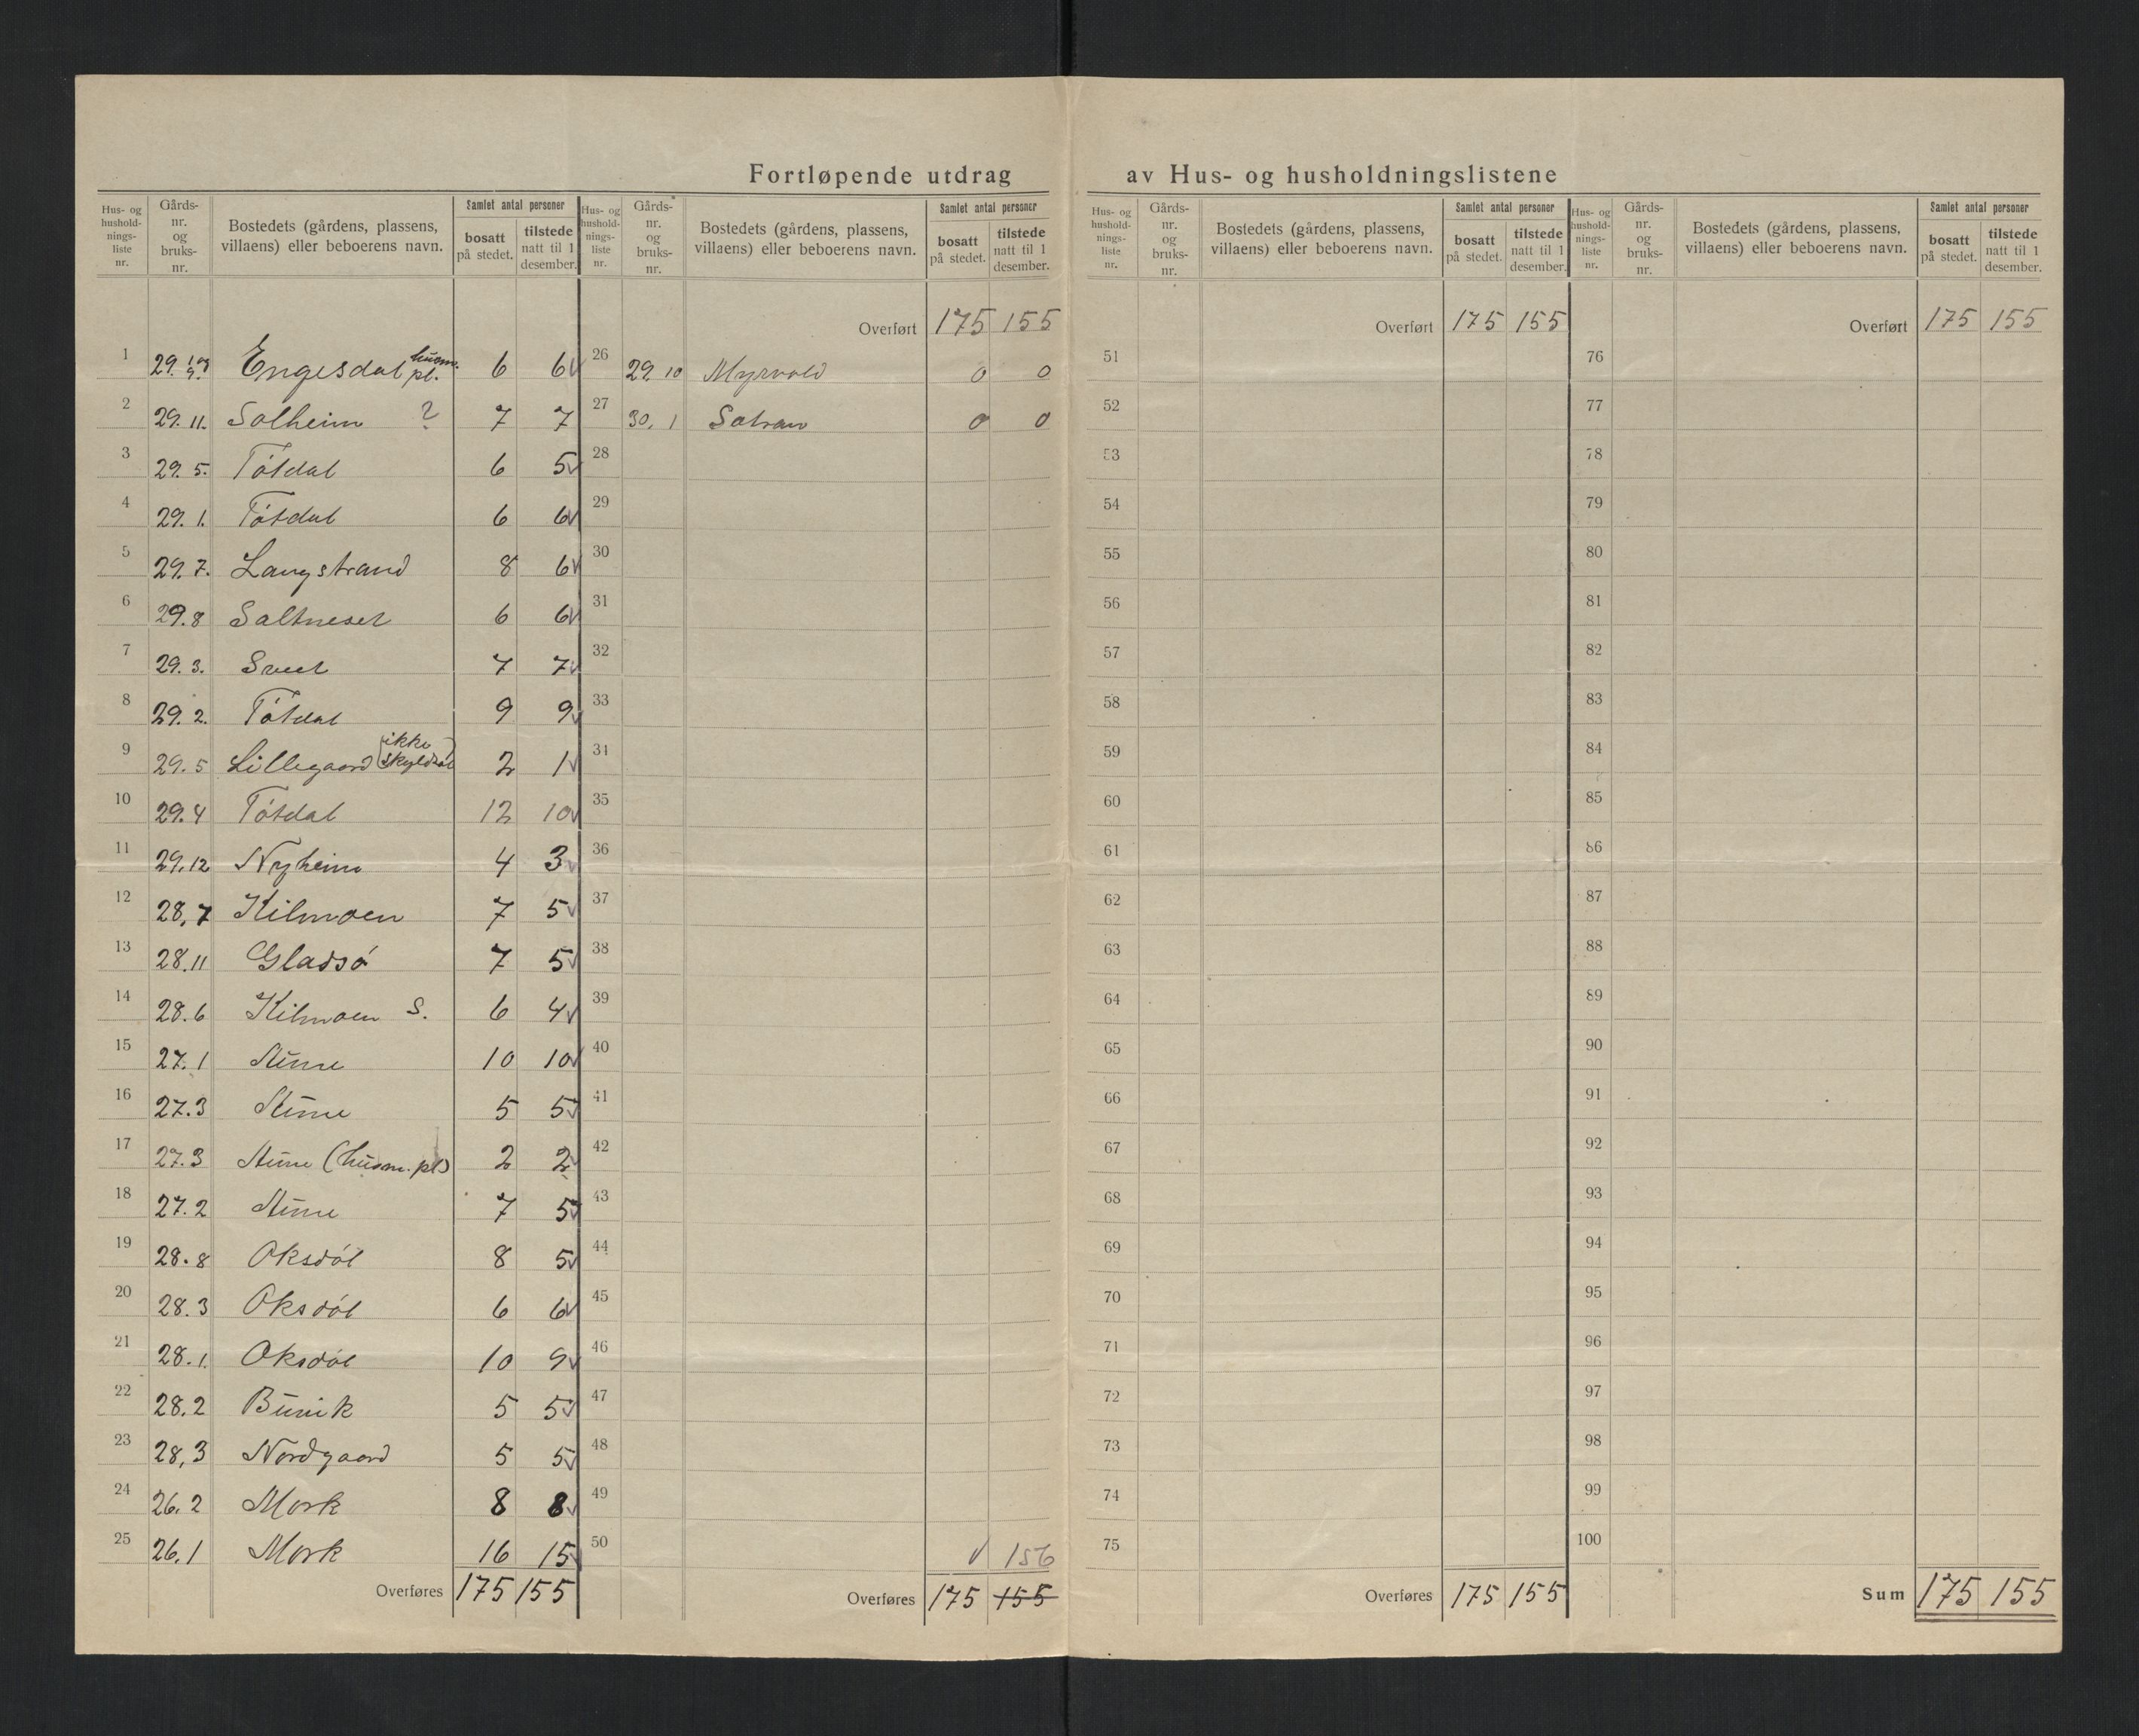 Fortløpende utdrag av Hus- og husholdningslistene
Hus- og hushold- nings- liste nr. Gårds- nr. og bruks- nr. Bostedets (gårdens, plassens, villaens) eller beboerens navn. Samlet antal personer bosatt på stedet. tilstede natt til 1 desember.
1 29. Engesdal husm. pl. 6 6 v
2 29. 11. Solheim ? 7 7
3 29. 5. Tøtdal 6 5 v
4 29. 1. Tøtdal 6 6 v
5 29. 7. Langstrand 8 6 v
6 29. 8 Saltneset 6 6 v
7 29. 3. 7 7 v
8 29. 2. Tøtdal 9 9 v
9 29. 5 Lillegaard (ikke skyldsat) 2 1 v
10 29. 4 Tøtdal 12 10 v
11 29. 12 Nyheim 4 3 v
12 28, 7 Kilmoen 7 5 v
13 28. 11 Gladsø 7 5 v
14 28. 6 Kilmoen S. 6 4 v
15 27. 1 Aune 10 10 v
16 27. 3 Aune 5 5 v
17 27. 3 Aune (husm. pl) 2 2 v
18 27. 2 Aune 7 5 v
19 28. 8 Oksdøl 8 5 v
20 28. 3 Oksdøl 6 6 v
21 28. 1. Oksdøl 10 9 v
22 28. 2 Bunik 5 5 v
23 28, 3 Nordgaard 5 5 v
24 26. 2 Mork 8 8 v
25 26. 1 Mork 16 15 v
Overføres 175 155
Hus- og hushold- nings- liste nr. Gårds- nr. og bruks- nr. Bostedets (gårdens, plassens, villaens) eller beboerens navn. Samlet antal personer bosatt på stedet. tilstede natt til 1 desember.
Overført 175 155
26 29. 10 Myrvold 0 0
27 30. 1 0 0
28
29
30
31
32
33
34
35
36
37
38
39
40
41
42
43
44
45
46
47
48
49
50 v 156
Overføres 175 155
Hus- og hushold- nings- liste nr. Gårds- nr. og bruks- nr. Bostedets (gårdens, plassens, villaens) eller beboerens navn. Samlet antal personer bosatt på stedet. tilstede natt til 1 desember.
Overført 175 155
51
52
53
54
55
56
57
58
59
60
61
62
63
64
65
66
67
68
69
70
71
72
73
74
75
Overføres 175 155
Hus- og hushold- nings- liste nr. Gårds- nr. og bruks- nr. Bostedets (gårdens, plassens, villaens) eller beboerens navn. Samlet antal personer bosatt på stedet. tilstede natt til 1 desember.
Overført 175 155
76
77
78
79
80
81
82
83
84
85
86
87
88
89
90
91
92
93
94
95
96
97
98
99
100
Sum 175 155